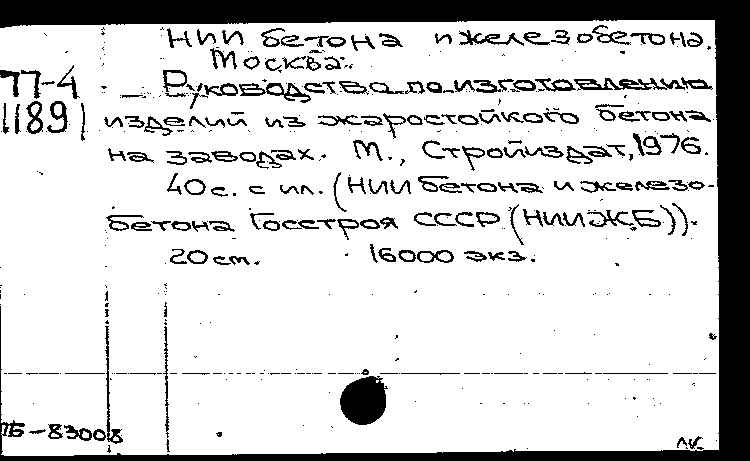 НИИ бетона и железобетона.
Москва.
П-4
1189
Руководство по изготовлению
изделий из жаростойкого бетона
на заводах. М., Стройиздат, 1976.
40 с. с ил. (НИИ бетона и железо-
бетона Госстроя СССР (НИИЖБ)).
20 см. 16000 экз.
ПБ-83008